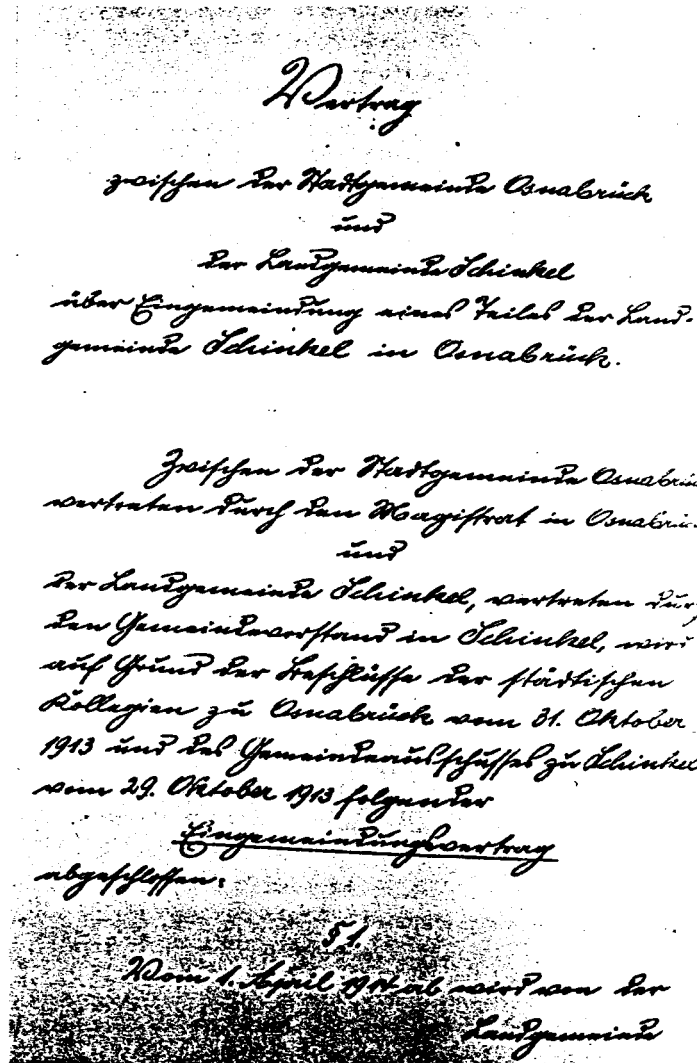 Vertrag
zwischen der Stadtgemeinde Osnabrück
und
der Landgemeinde Schinkel
über Eingemeindung eines Teiles der Land-
gemeinde Schinkel in Osnabrück.
Zwischen der Stadtgemeinde Osnabrück
vertreten durch den Magistrat in Osnabrü
und
der Landgemeinde Schinkel, vertreten durch
den Gemeindevorstand in Schinkel, wird
auf Grund der Beschlüsse der städtischen
Kollegien zu Osnabrück vom 31. Oktober
1913 und des Gemeindeausschusses zu Schinkel
vom 29. Oktober 1913 folgender
Eingemeindungsvertrag
abgeschlossen:
§ 1.
Vom 1. April 1914 ab wird von der
Landgemeinde